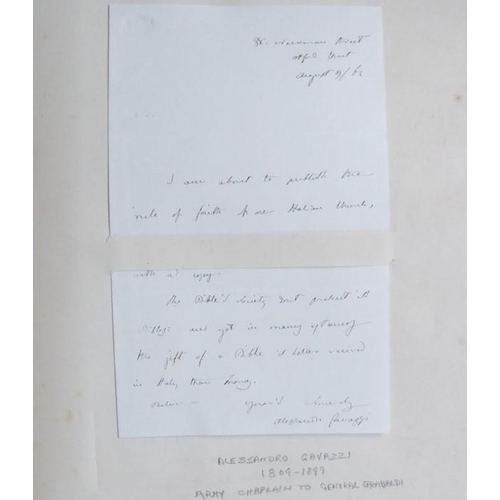 Street
August 9/62
I am about to publish the
rule of faith of our Italian Church,
with a copy.
The Bible's Society
and yet in many
the gift of a Bible is better received
in Italy than money.
yours sincerely
Alessandro Gavazzi
ALESSANDRO GAVAZZI
1809-1899
ARMY CHAPLAIN TO GENERAL GARIBALDI